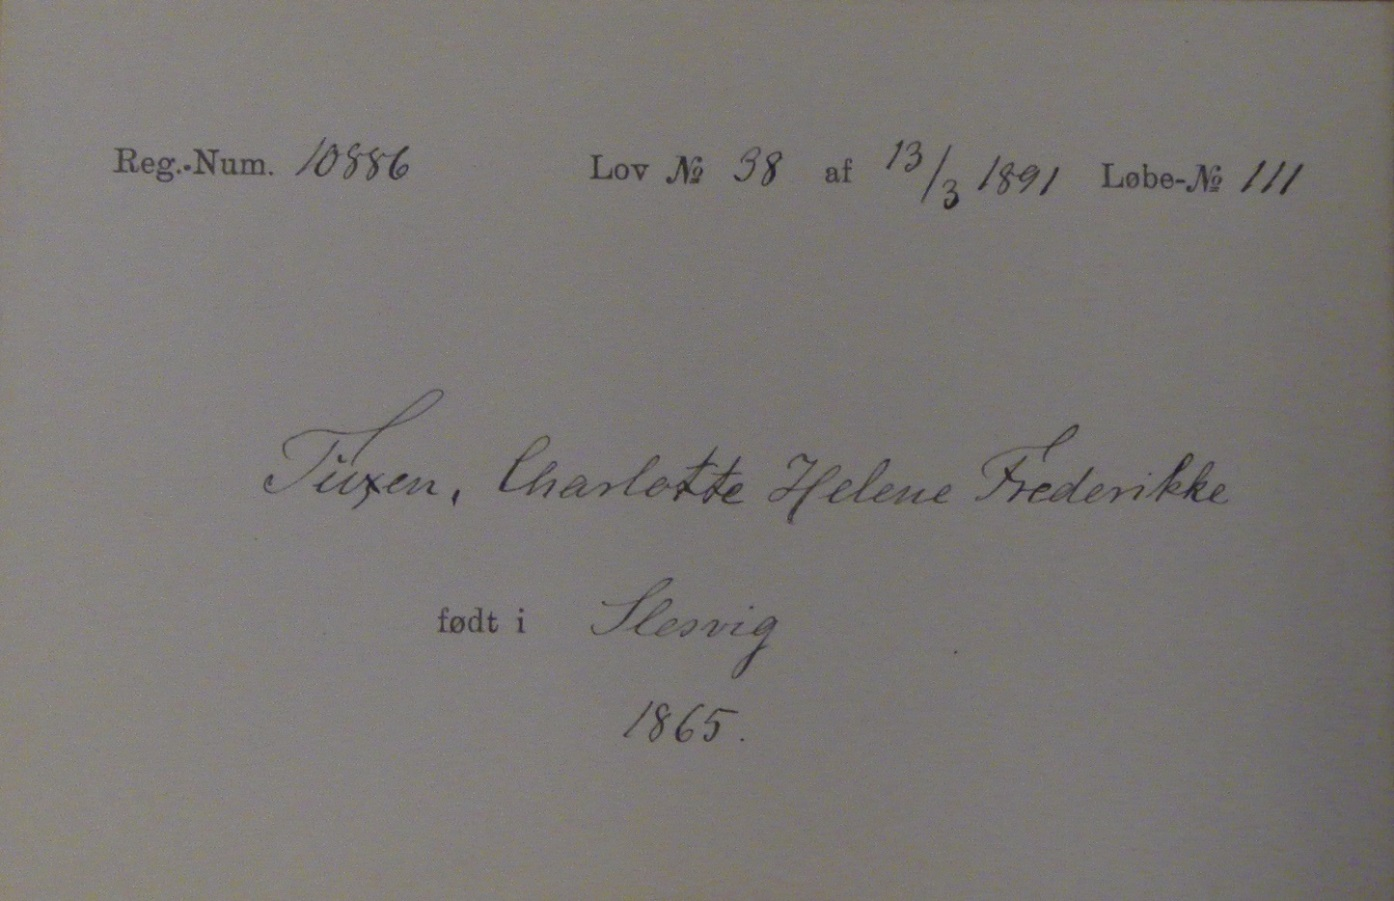 Reg.-Num. 10886 Lov № 38 af 13/3 1891 Løbe-№ 111
Tuxen, Charlotte Helene Frederikke
født i Slesvig
1865.